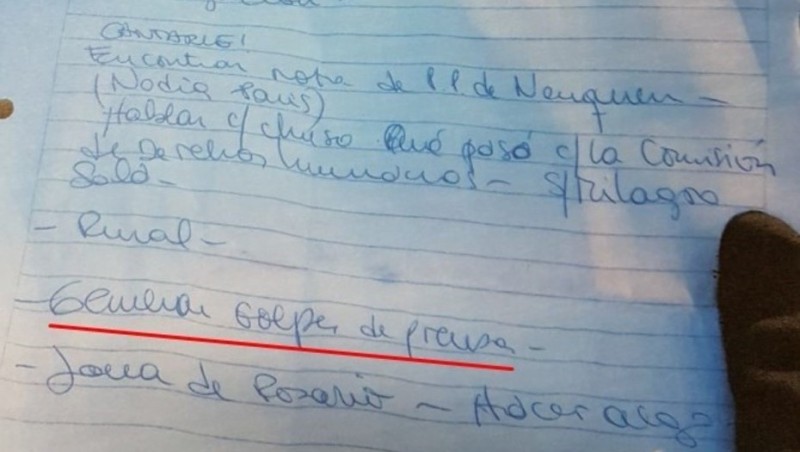 CANTARLE!
Encontrar nota de P.P. de Neuquen -
(Nodia Paris)
Hablar c/ chino Qué pasó c/ la Comisión
de Derechos humanos - S/ Milagro
Sala -
- Rural -
- Generar Golpes de prensa -
- Zona de Rosario - Hacer algo